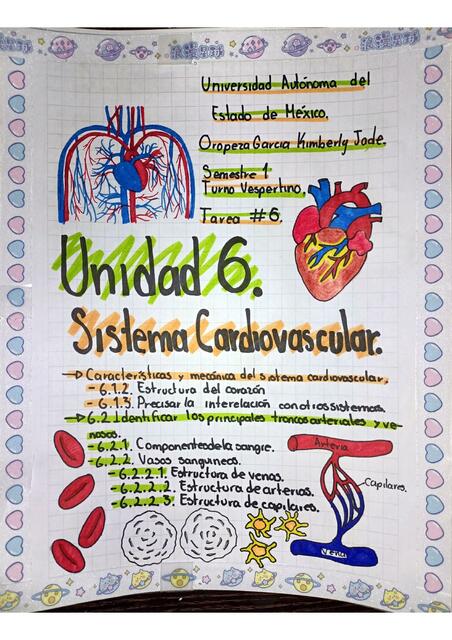 Universidad Autónoma del
Estado de México.
Oropeza Garcia Kimberly Jade.
Semestre 1
Turno Vespertino.
Tarea #6.
Unidad 6.
Sistema Cardiovascular.
→ Características y mecánica del sistema cardiovascular.
- 6.1.2. Estructura del corazón
- 6.1.3. Precisar la interelación con otros sistemas.
→ 6.2 Identificar los principales troncos arteriales y ve-
nosos.
- 6.2.1. Componentes de la sangre.
- 6.2.2. Vasos sanguineos.
- 6.2.2.1. Estructura de venas.
- 6.2.2.2. Estructura de arterias.
- 6.2.2.3. Estructura de capilares.
Arteria
Capilares.
Vena